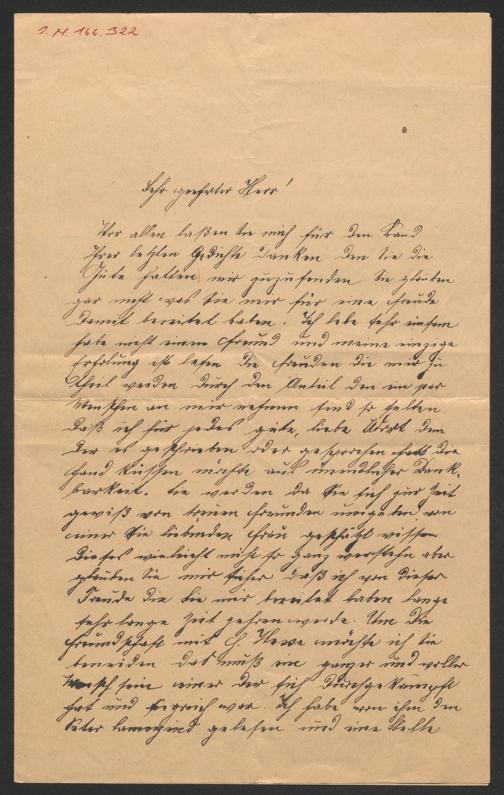 J.N. 166.322
Sehr geehrter Herr!
Vor allem laßen Sie mich für den Band
Ihrer letzten Gedichte danken den Sie die
Güte hatten mir zuzusenden Sie glauben
gar nicht was Sie mir für eine Freude
damit bereitet haben. Ich lebe sehr einsam
habe nicht einen Freund und meine einzige
Erholung ist lesen Die Freuden die mir zu
Theil werden durch den Anteil den ein par
Menschen an mir nehmen sind so selten
daß ich für jedes gute, liebe Wort dem
der es geschrieben oder gesprochen hatt die
Hand küssen möchte aus unendlicher Dank-
barkeit. Sie werden da Sie sich zur Zeit
gewiß von treuen Freunden umgeben von
einer Sie liebenden Frau geschätzt wissen
dieses vieleicht nicht so ganz verstehn aber
glauben Sie mir sicher daß ich von dieser
Freude die Sie mir bereitet haben lange
sehr lange Zeit zehren werde. Um die
Freundschaft mit H. Hesse möchte ich Sie
beneiden das muß ein ganzer und voller
Mensch sein einer der sich durchgekämpft
hat und siegreich war. Ich habe von ihm den
Peter Camenzind gelesen und eine Stelle